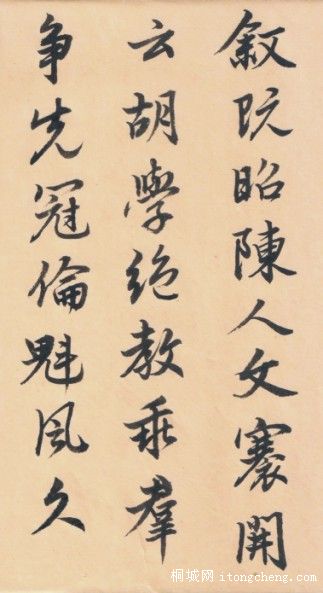 敘既昭陳人文褰開
云胡學絶教乖羣
争先冠倫魁風久
桐城网 itongcheng.com